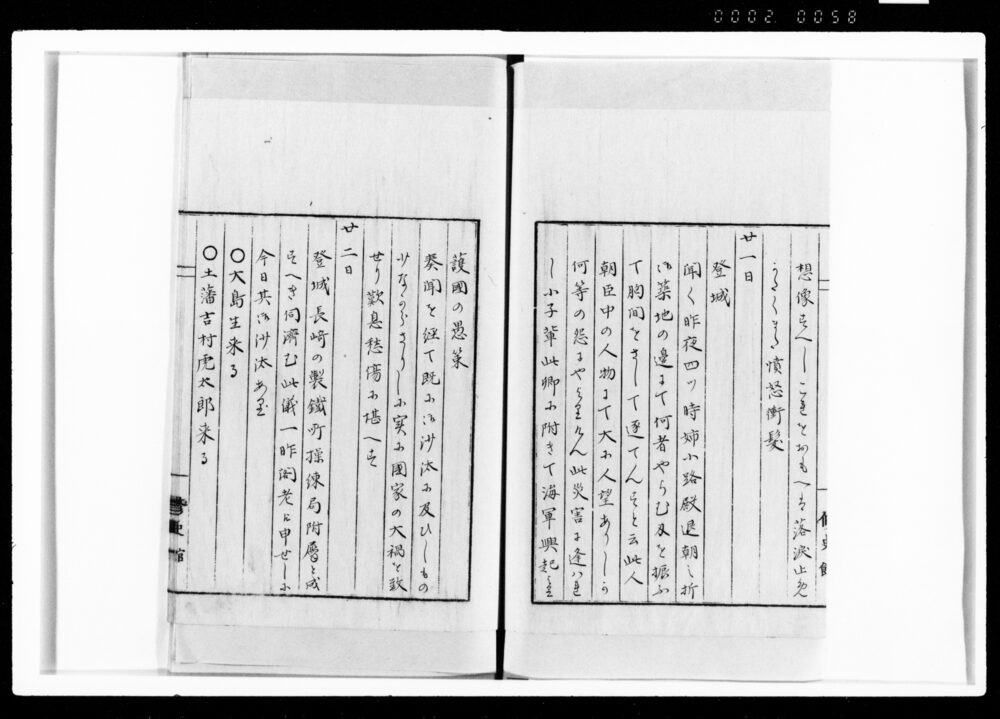 0002 0058
想像すへしこれをおもへは落涙止め
憤怒衝髪
廿一日
登城
聞く昨夜四ツ時姉小路殿退朝之折
御築地の邊にて何者やらむ刄を振ふ
て胸間をさして逐てんすと云此人
朝臣中の人物にて大に人望ありしか
何等の怨にや此災害に逢はれ
し小子輩此卿に附きて海軍興起
護國の愚策
葵聞を経て既に御沙汰に及ひしもの
少なからさりしに実に國家の大禍を致
せり歎息愁傷に堪へす
廿二日
登城長崎の製鐵所操練局附屬と成
すへき伺濟む此儀一昨閣老に申せしに
今日其御沙汰あり
〇大島生来る
〇土藩吉村虎太郎来る